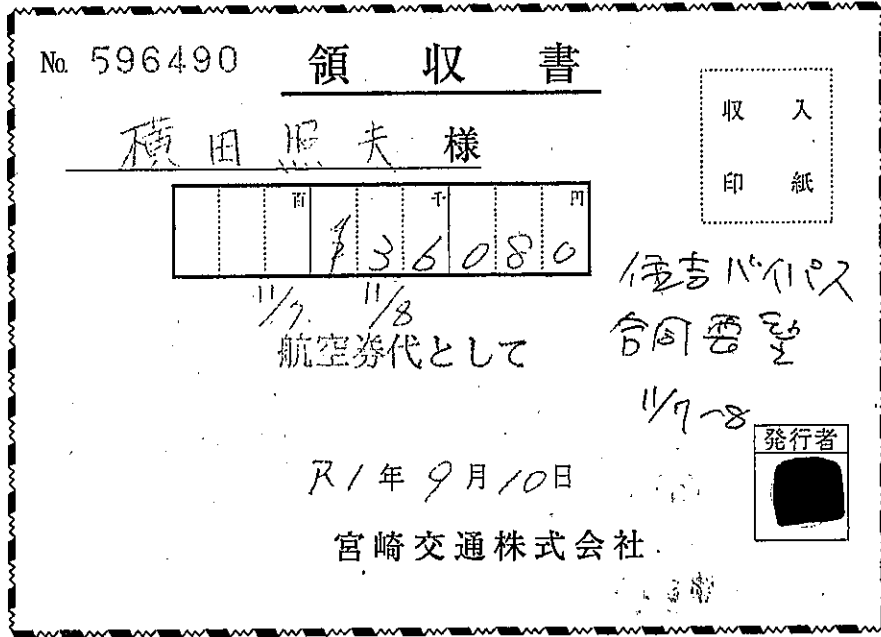 No. 596490 領収書
横田照夫様
収入
印紙
百 千 円
¥36080
11/7 11/8
航空券代として
住吉バイパス
合同要望
11/7~8
発行者
R1年9月10日
宮崎交通株式会社